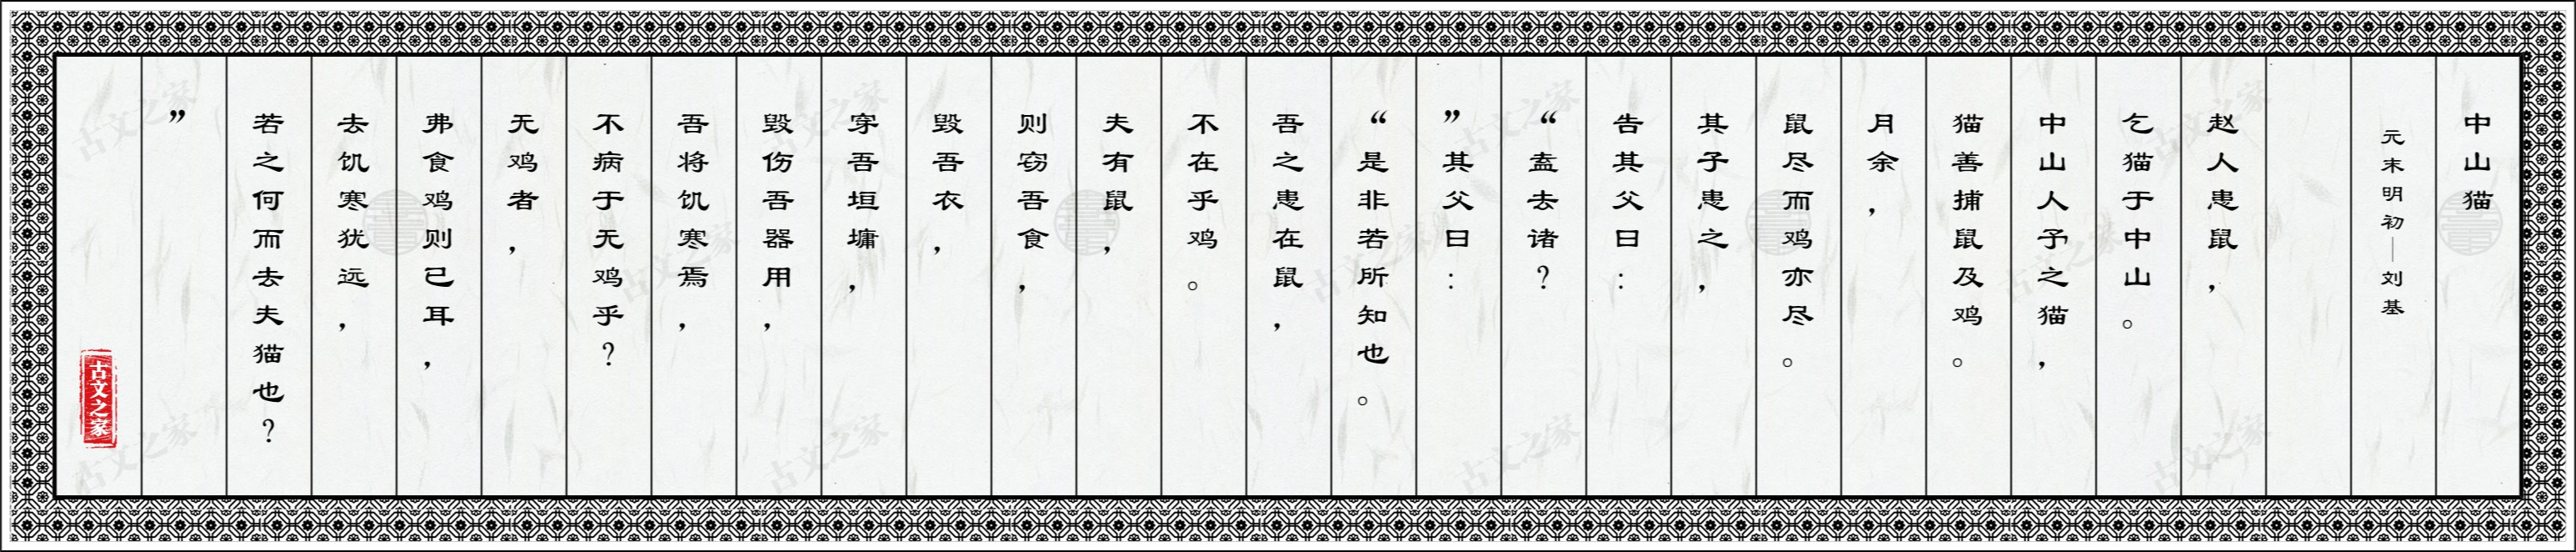 中山猫
元末明初—刘基
赵人患鼠，
乞猫于中山。
中山人予之猫，
猫善捕鼠及鸡。
月余，
鼠尽而鸡亦尽。
其子患之，
告其父曰：
“盍去诸？
”其父曰：
“是非若所知也。
吾之患在鼠，
不在乎鸡。
夫有鼠，
则窃吾食，
毁吾衣，
穿吾垣墉，
毁伤吾器用，
吾将饥寒焉，
不病于无鸡乎？
无鸡者，
弗食鸡则已耳，
去饥寒犹远，
若之何而去夫猫也？
”
古文之家